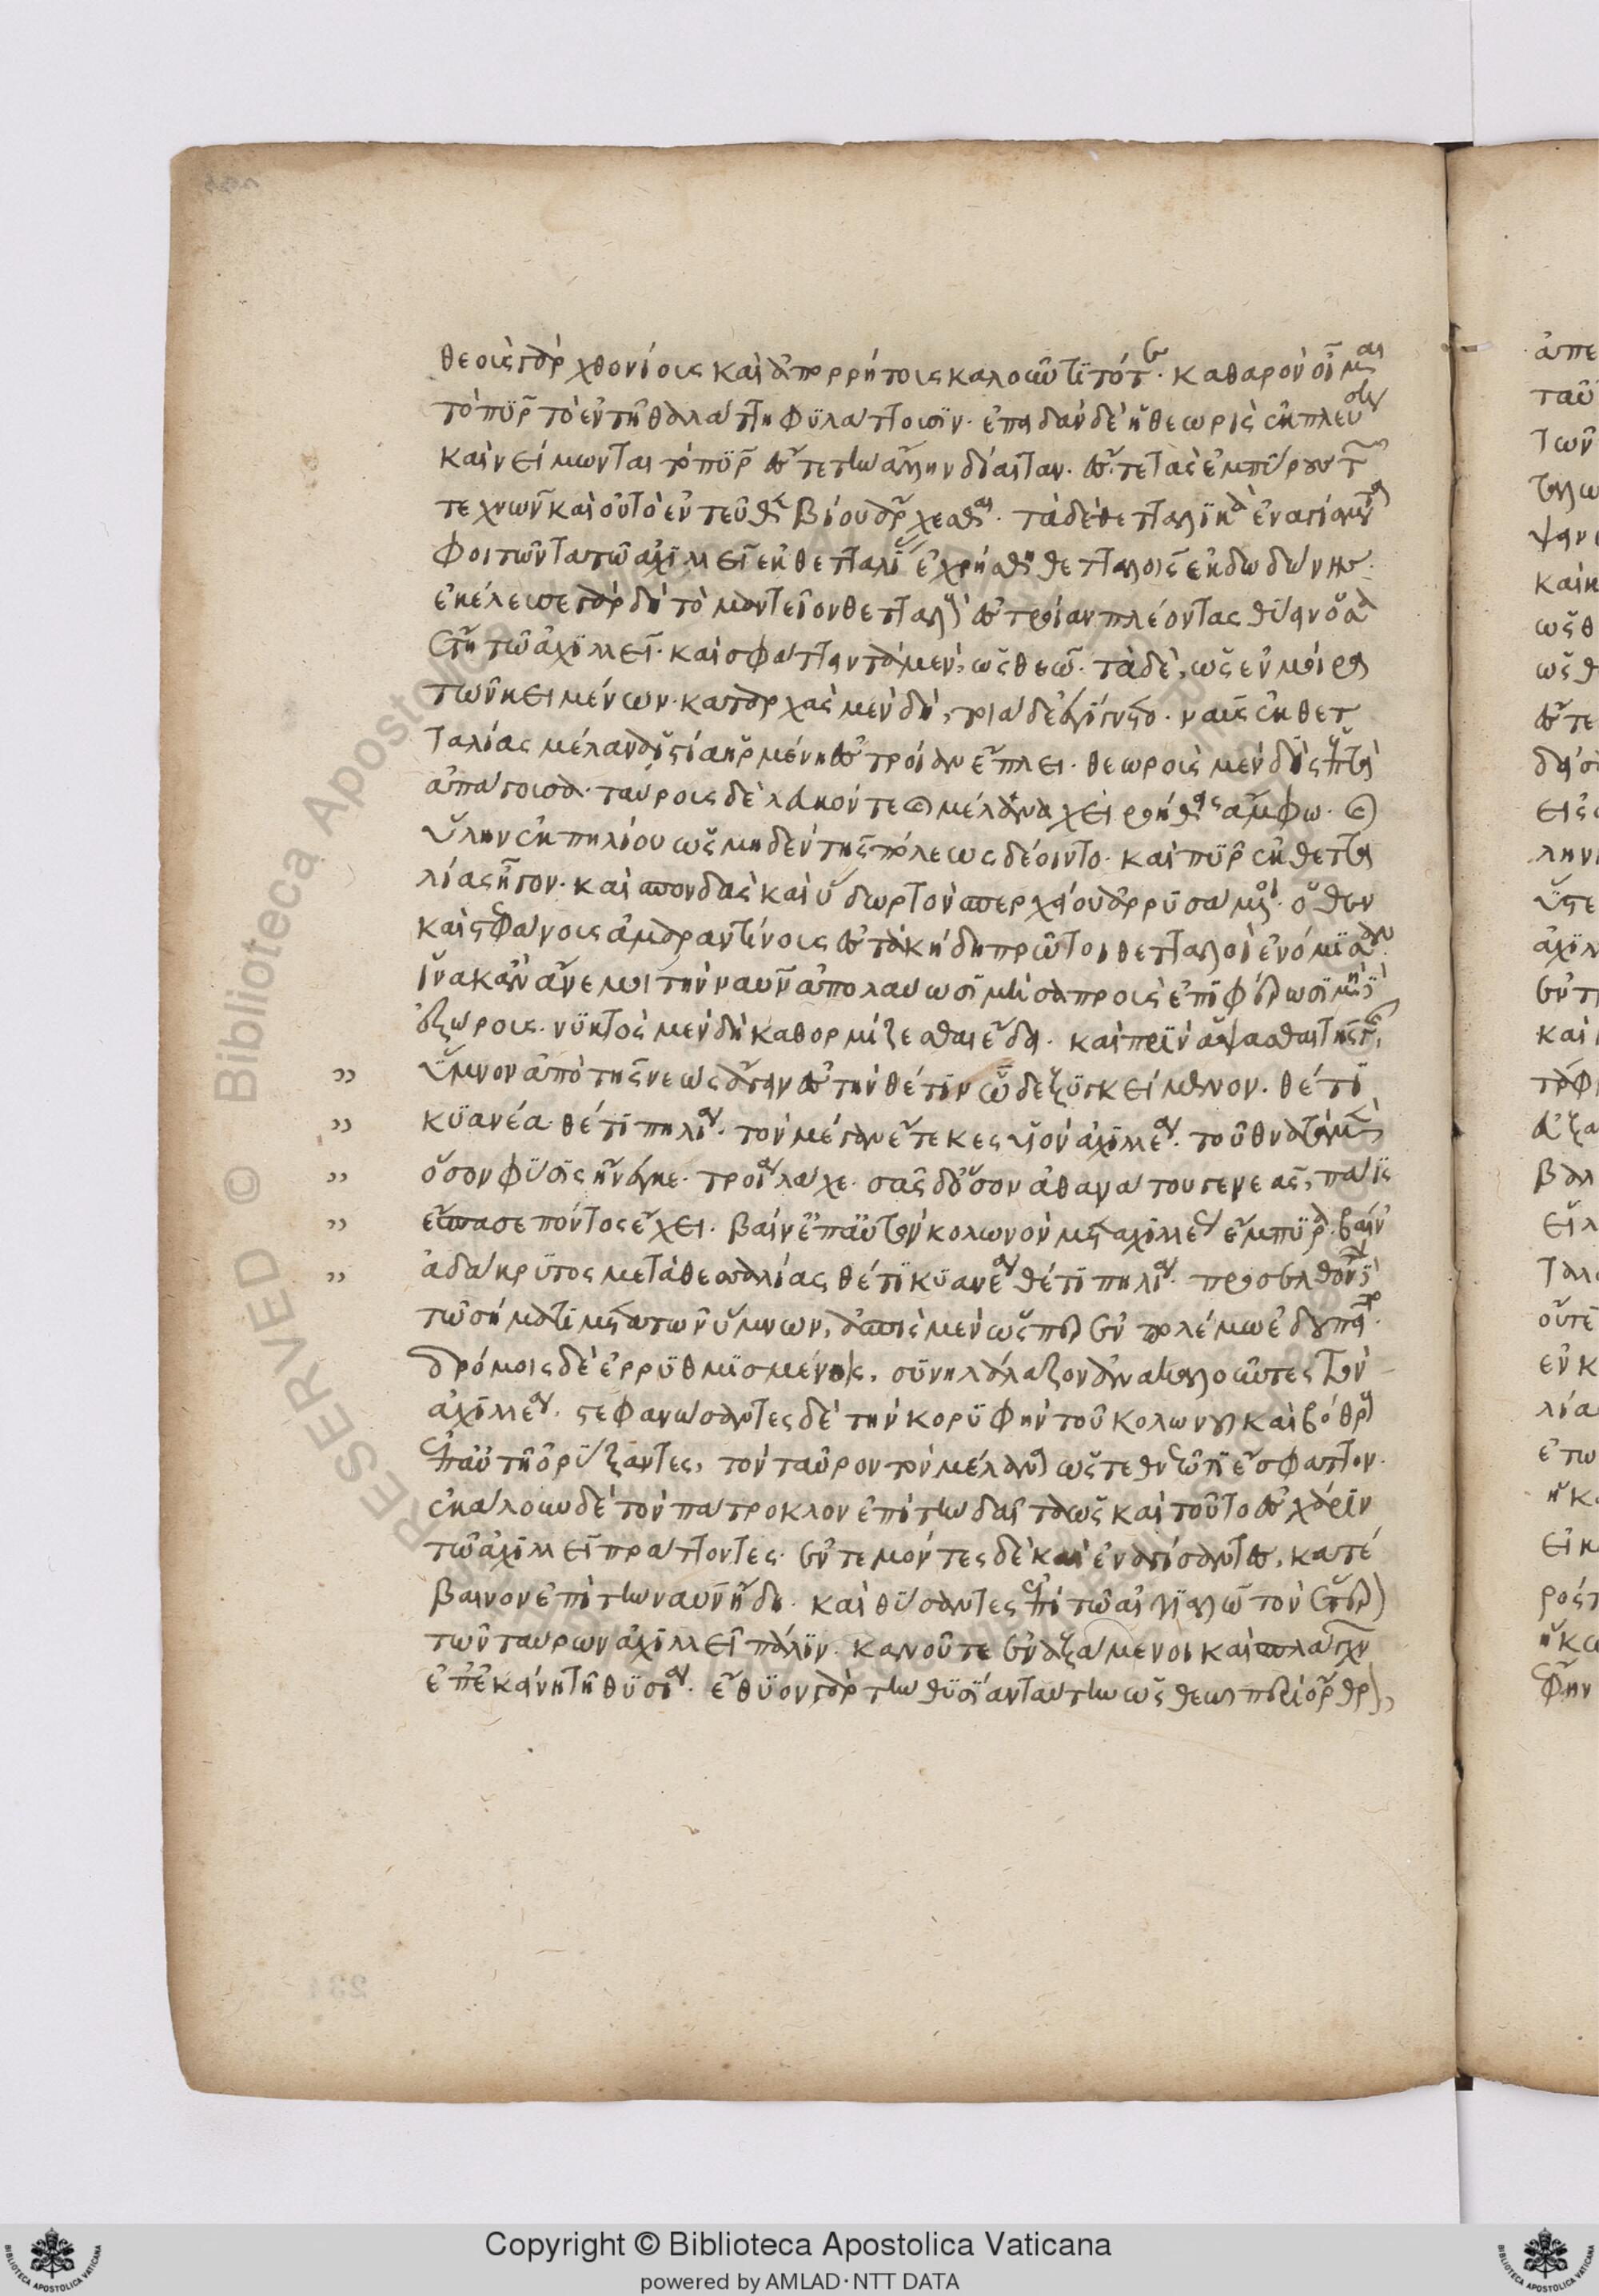 θεοὺς γὰρ χθονίους καὶ ἀπορρήτους καλοῦσι τότε. καθαρὸν οἶμαι
τὸ πῦρ τὸ ἐν τῇ θαλάττῃ φυλάττουσιν. ἐπειδὰν δὲ ἡ θεωρὶς ἐκπλεύσῃ
καὶ νείμωνται τὸ πῦρ ἔς τε τὴν ἄλλην δίαιταν. ἔς τε τὰς ἐμπύρους τῶν
τεχνῶν καινοῦ τὸ ἐντεῦθεν βίου ἄρχεσθαι. τὰ δὲ θετταλικὰ ἐναγίσματα
φοιτῶντα τῷ ἀχιλλεῖ ἐκ θετταλίας ἐχρήσθη θετταλοῖς ἐκ δωδώνης.
ἐκέλευσε γὰρ δὴ τὸ μαντεῖον θετταλοὺς ἐς τροίαν πλέοντας θύειν ὅσα
ἔτη τῷ ἀχιλλεῖ. καὶ σφάττειν τὰ μὲν, ὡς θεῷ. τὰ δὲ, ὡς ἐν μοίρᾳ
τῶν κειμένων. καταρχὰς μὲν δὴ, τοιάδε ἐγίγνετο. ναῦς ἐκ θετ
ταλίας μέλανα ἱστία ἠρμένη ἐς τροίαν ἔπλει. θεωροὺς μὲν δὶς ἑπτὰ
ἀπάγουσα. ταύρους δὲ λευκόν τε καὶ μέλανα χειροήθεις ἄμφω. καὶ
ὕλην ἐκ πηλίου ὡς μηδὲν τῆς πόλεως δέοιντο. καὶ πῦρ ἐκ θεττα
λίας ἦγον. καὶ σπονδὰς καὶ ὕδωρ τοῦ σπερχειοῦ ἀρυσάμενοι. ὅθεν
καὶ στεφάνους ἀμαραντίνους ἐς τὰ κήδη πρῶτοι θετταλοὶ ἐνόμισαν.
ἵνα κἂν ἄνεμοι τὴν ναῦν ἀπολάβωσι μὴ σαπροὺς ἐπιφέρωσι μηδ'
ἐξώρους. νυκτὸς μὲν δὴ καθορμίζεσθαι ἔδει. καὶ πρὶν ἅψασθαι τῆς γῆς,
ὕμνον ἀπὸ τῆς νεὼς ᾄδειν ἐς τὴν θέτιν ὧδε ξυγκείμενον. θέτι
κυανέα. θέτι πηλεία. τὸν μέγαν ἔτεκες υἱὸν ἀχιλλέα. τοῦ θνατὰ μὲν
ὅσον φύσις ἤνεγκε. τροία λάχε. σᾶς δ' ὅσον ἀθανάτου γενεᾶς, παῖς
ἔσπασε πόντος ἔχει. βαῖνε ἐπ' αἰπὺν κολωνὸν μετ' ἀχιλλέως ἔμπυρα. βαῖν'
ἀδάκρυτος μετὰ θεσσαλίας, θέτι κυανέα θέτι πηλεία. προσελθόντων δὲ
τῷ σήματι μετὰ τὸν ὕμνον, ἀσπὶς μὲν ὥσπερ ἐν πολέμῳ ἐδουπεῖτο.
δρόμοις δὲ ἐρρυθμισμένοις, συνηλάλαζον ἀνακαλοῦντες τὸν
ἀχιλλέα. στεφανώσαντες δὲ τὴν κορυφὴν τοῦ κολωνοῦ καὶ βόθρους
ἐπ' αὐτῇ ὀρύξαντες, τὸν ταῦρον τὸν μέλανα ὡς τεθνεῶτι ἔσφαττον.
ἐκάλουν δὲ τὸν πάτροκλον ἐπὶ τὴν δαῖτα ὡς καὶ τοῦτο ἐς χάριν
τῷ ἀχιλλεῖ πράττοντες. ἐντεμόντες δὲ καὶ ἐναγίσαντες, κατέ
βαινον ἐπὶ τὴν ναῦν ἤδη. καὶ θύσαντες ἐπὶ τῷ αἰγιαλῷ τὸν ἕτερον
τῶν ταύρων ἀχιλλεῖ πάλιν. κανοῦ τε ἐναρξάμενοι καὶ σπλάγχνων
ἐπ' ἐκείνῃ τῇ θυσίᾳ. ἔθυον γὰρ τὴν θυσίαν ταύτην ὡς θεῷ περὶ ὄρθρον,